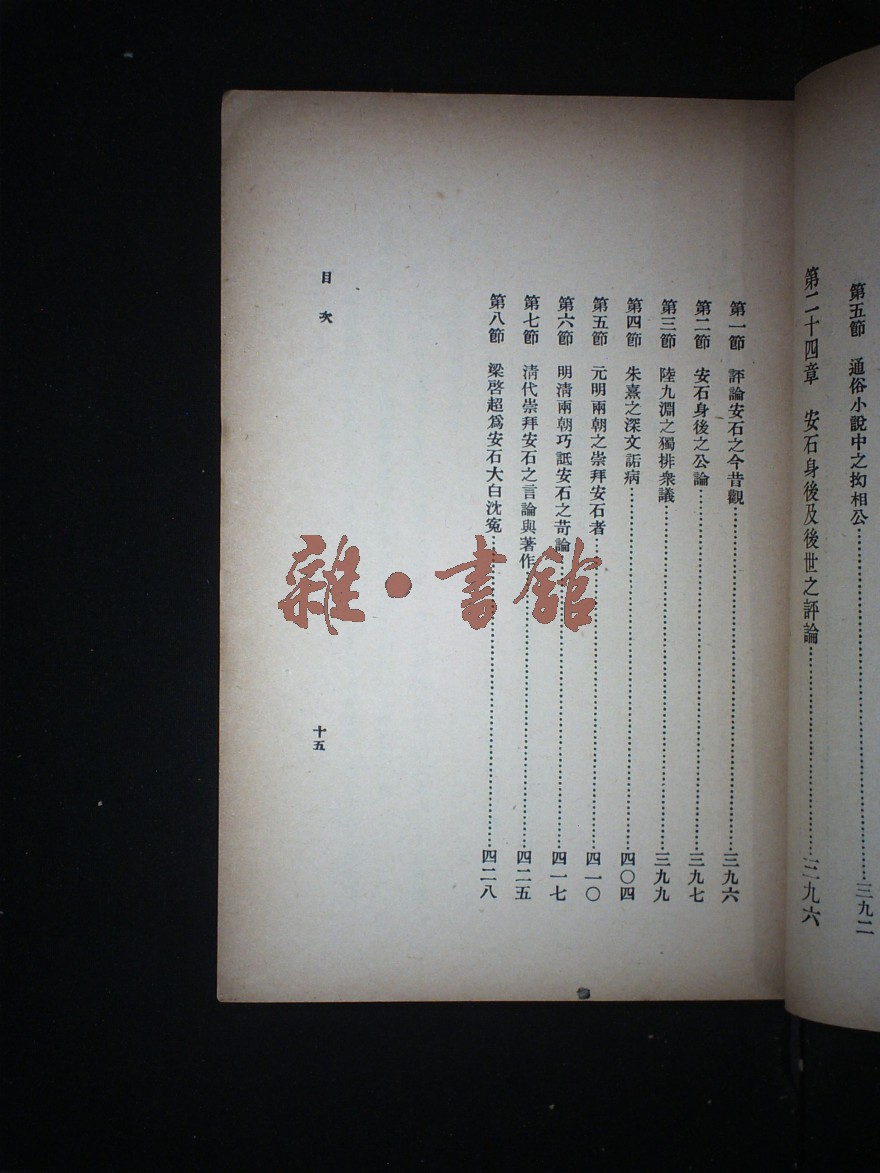 第五節　通俗小說中之拗相公………三九二
第二十四章　安石身後及後世之評論………三九六
第一節　評論安石之今昔觀………三九六
第二節　安石身後之公論………三九七
第三節　陸九淵之獨排衆議………三九九
第四節　朱熹之深文詬病………四〇四
第五節　元明兩朝之崇拜安石者………四一〇
第六節　明淸兩朝巧詆安石之苛論………四一七
第七節　淸代崇拜安石之言論與著作………四二五
第八節　梁啓超爲安石大白沈冤………四二八
目次
十五
雜・書館